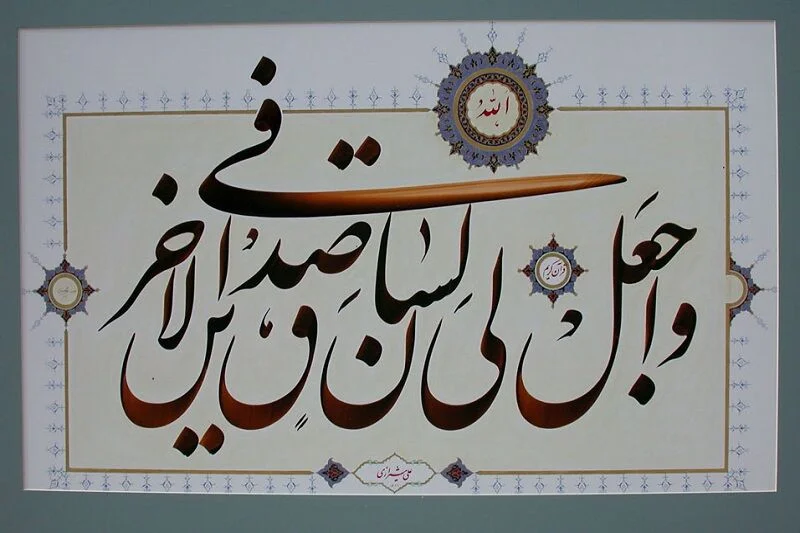 الله
واجعل لی لسان صدق فی الاخرین
قرآن کریم
علی شیرازی